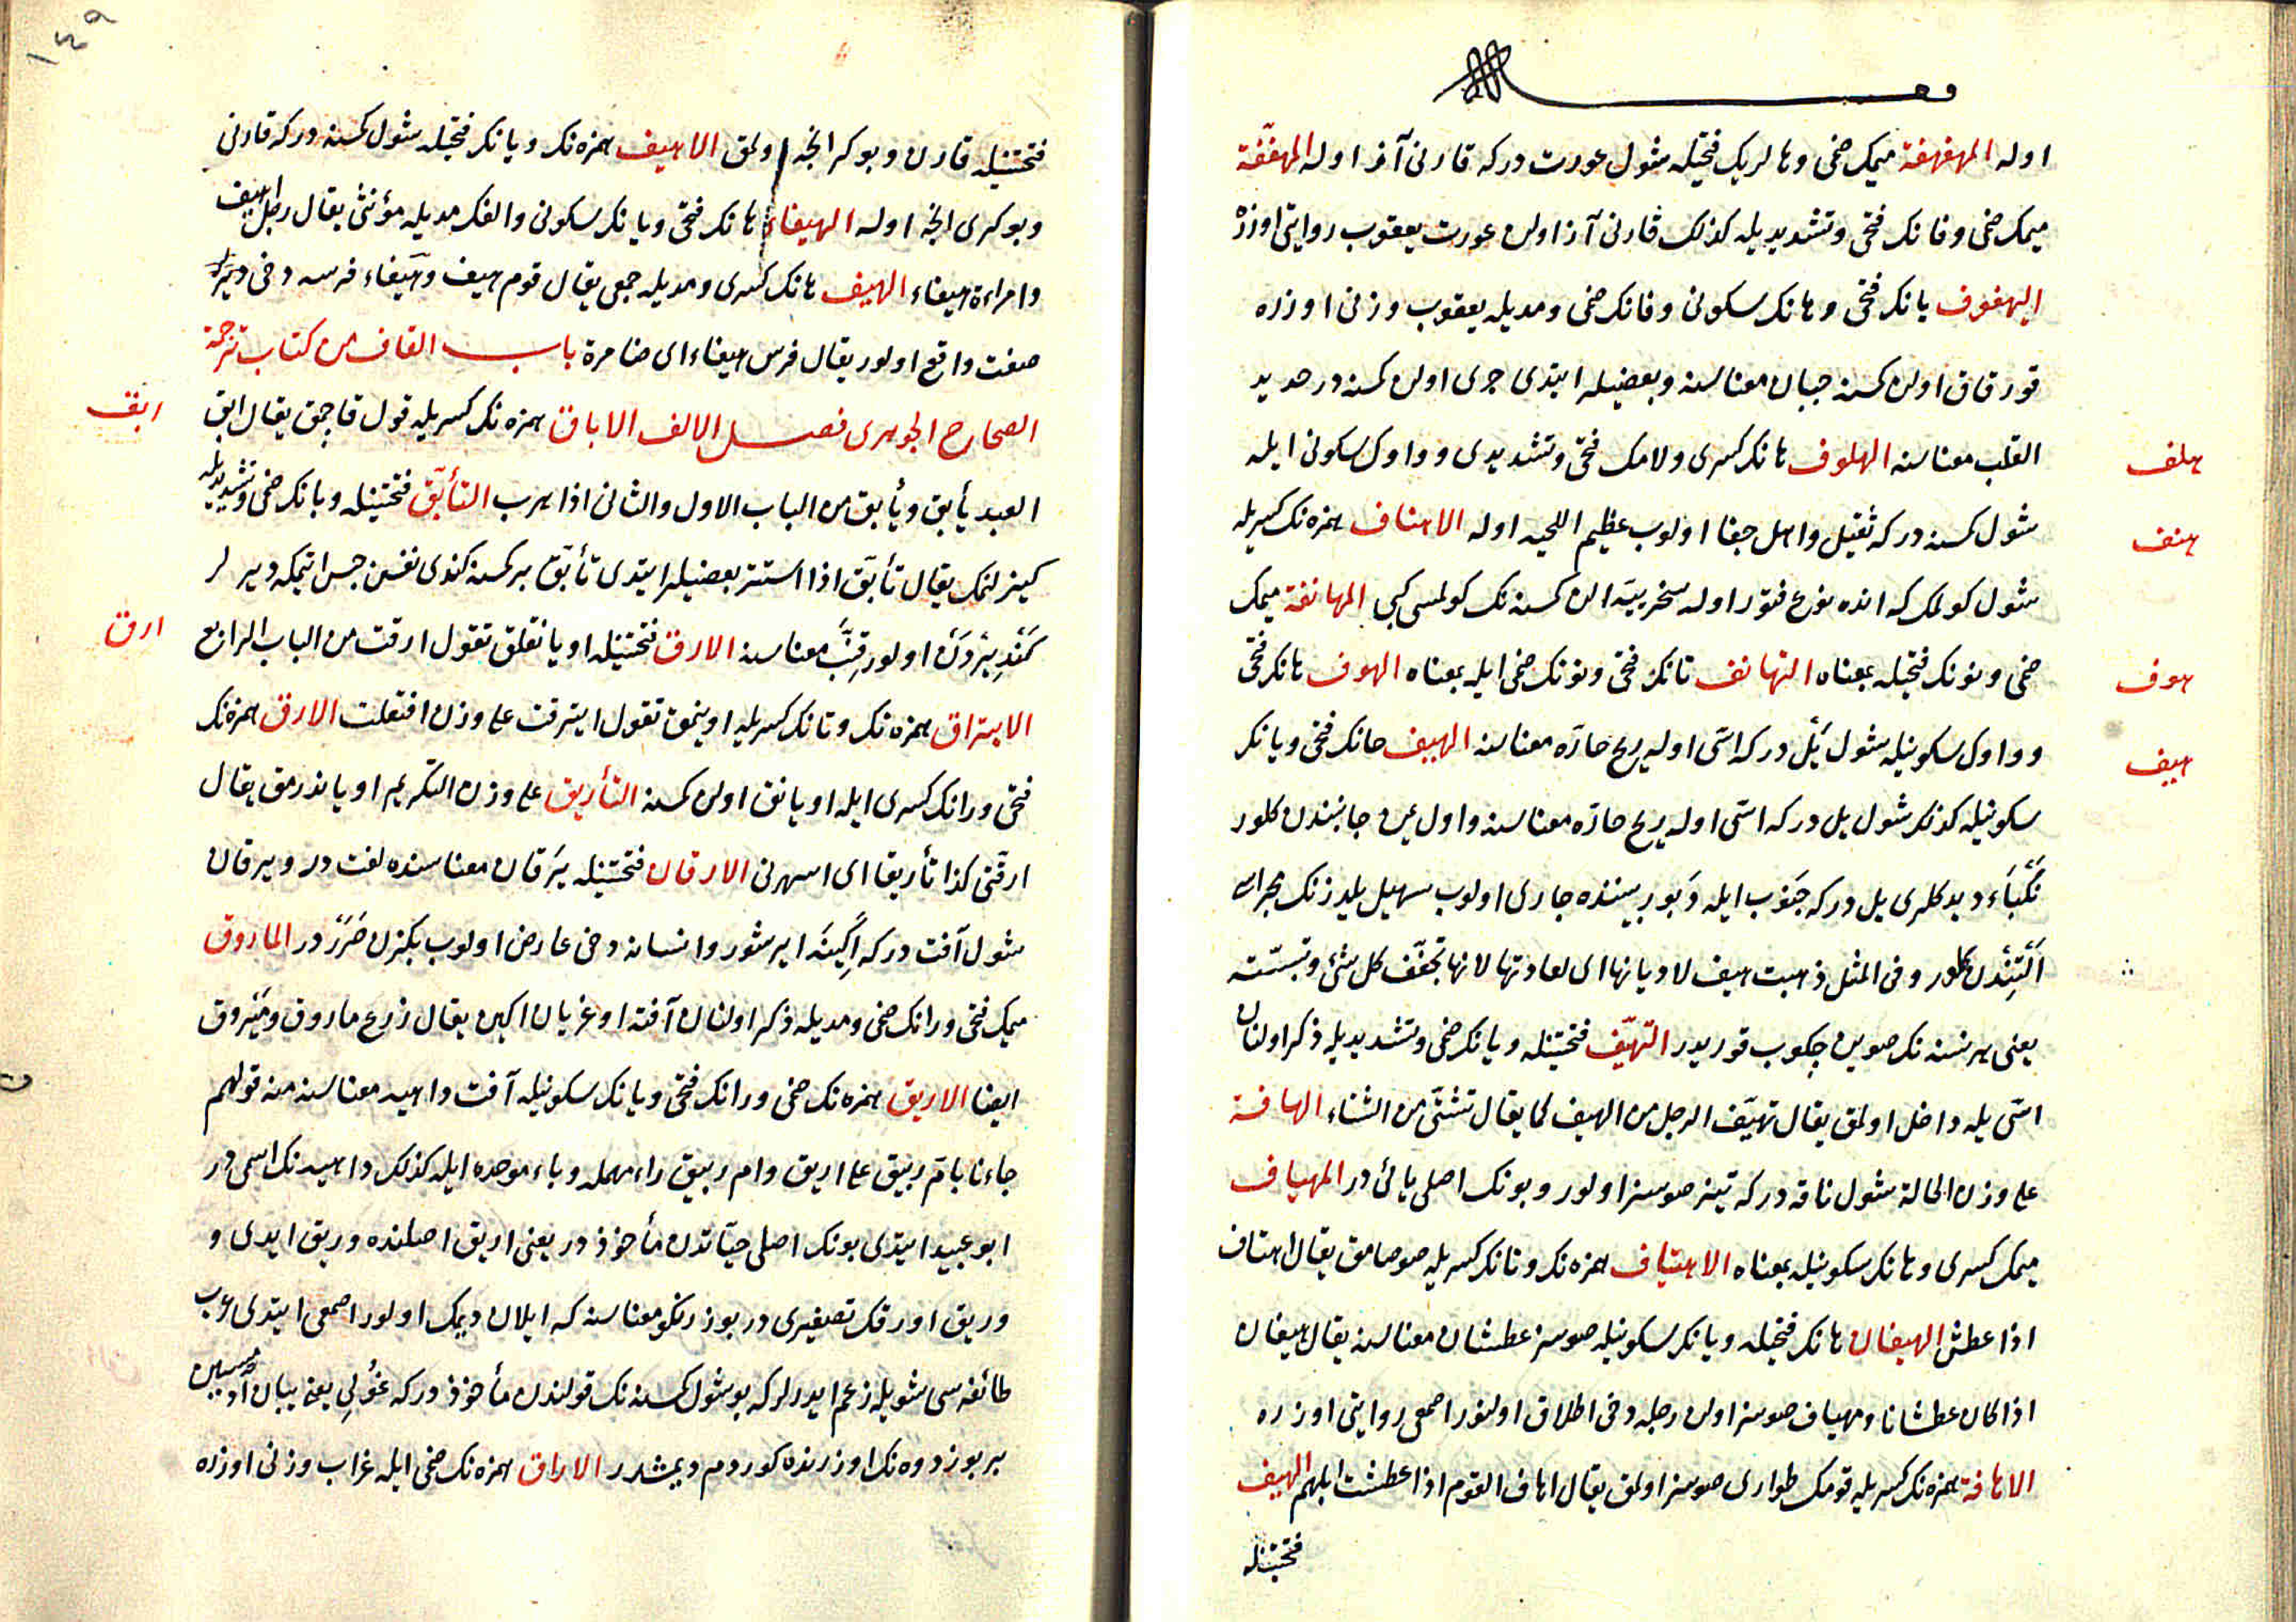 اوله المهفهفة ميمك ضمی وهالريك فتحيله شول عورت دركه قارنی آز اوله المهففة
ميمك ضمی وفانك فتحی وتشديديله كذلك قارنی آز اولن عورت يعقوب روايتی اوزره
اليهفوف يانك فتحی وهانك سكونی وفانك ضمی ومديله يعقوب وزنی اوزره
قورقاق اولن كمسنه جبان معناسنه وبعضيلر ايتدی جری اولن كمسنه در حديد
القلب معناسنه الهلوف هانك كسری ولامك فتحی وتشديدی وواوك سكونی ايله
هلف
شول كمسنه دركه ثقيل واهل جفا اولوب عظيم اللحيه اوله الاهناف همزه نك كسريله
هنف
شول كولمك كه انده نوع فتور اوله سخريه ايدن كمسنه نك كولمسی كبی المهانفة ميمك
ضمی ونونك فتحيله بمعناه التهانف تانك فتحی ونونك ضمی ايله بمعناه الهوف هانك فتحی
هوف
وواوك سكونيله شول يل دركه اسی اوله ريح حاره معناسنه الهيف هانك فتحی ويانك
هيف
سكونيله كذلك شول يل دركه اسی اوله ريح حاره معناسنه واول يمن جانبندن كلور
نكباء ديدكلری يل دركه جنوب ايله دبور بيننده جاری اولوب سهيل يلدزنك مجراسی
التندن كلور وفی المثل ذهبت هيف لاديانها ای لعادتها لانها تجفف كل شئ وتيبسه
يعنی هر نسنه نك صوين چكوب قوريدر التهيف فتحتينله ويانك ضمی وتشديديله ذكر اولنان
اسی يله داخل اولمق يقال تهيف الرجل من الهيف كما يقال تشتی من الشتاء الهافة
علی وزن الحالة شول ناقه دركه تيز صوسز اولور وبونك اصلی يائی در المهياف
ميمك كسری وهانك سكونيله بمعناه الاهتياف همزه نك وتانك كسريله صوصامق يقال اهتاف
اذا عطش الهيفان هانك فتحيله ويانك سكونيله صوسز عطشان معناسنه يقال هيفان
اذا كان عطشانا ومهياف صوسز اولن رجله دخی اطلاق اولنور اصمعی روايتی اوزره
الاهافة همزه نك كسريله قومك طواری صوسز اولمق يقال اهاف القوم اذا عطشت ابلهم الهيف
فتحتينله
١٤٩
فتحتينله قارن وبوكر انجه اولمق الاهيف همزه نك ويانك فتحيله شول كمسنه دركه قارنی
وبوكری انجه اوله الهيفاء هانك فتحی ويانك سكونی والفك مديله مؤنثی يقال رجل اهيف
وامراءة هيفاء الهيف هانك كسری ومديله جمعی يقال قوم هيف وهيفاء فرسه دخی ديرلر
صفت واقع اولور يقال فرس هيفاء ای ضامرة باب القاف من كتاب ترجمة
الصحاح الجوهری فصل الالف الاباق همزه نك كسريله قول قاچمق يقال ابق
ابق
العبد يأبق ويأبق من الباب الاول والثانی اذا هرب التأبق فتحتينله وبانك ضمی وتشديديله
كيزلنمك يقال تأبق اذا استتر بعضيلر ايتدی تأبق بر كمسنه كندی نفسن حبس ايتمكه ديرلر
اولور قنب معناسنه الارق فتحتينله اويانقلق تقول ارقت من الباب الرابع
ارق
الايتراق همزه نك وتانك كسريله اوينمق تقول ايترقت علی وزن افتعلت الارق همزه نك
فتحی ورانك كسری ايله اويانق اولن كمسنه التأريق علی وزن التكريم اوياندرمق يقال
ارقنی كذا تأريقا ای اسهرنی الارقان فتحتينله يرقان معناسنده لغت در ويرقان
شول آفت دركه اكينه ايرشور وانسانه دخی عارض اولوب بكزن صررر در الماروق
ميمك فتحی ورانك ضمی ومديله ذكر اولنان آفته اوغريان اكين يقال زرع ماروق وميروق
ايضا الاريق همزه نك ضمی ورانك فتحی ويانك سكونيله آفت داهيه معناسنه منه قولهم
جاءنا بام ربيق علی اريق وام ربيق راء مهمله وباء موحده ايله كذلك داهيه نك اسمی در
ابو عبيد ايتدی بونك اصلی حياتدن مأخوذ در يعنی اريق اصلنده وريق ايدی و
وريق اورقك تصغيری در بوز رنكلو معناسنه كه ايلان ديمك اولور اصمعی ايتدی عرب
طائفه سی شويله زعم ايدرلر كه بو شول كمسنه نك قولندن مأخوذ دركه غولی يعنی بيان آدميسين
بر بوز دوه نك اوزرنده كوردم ديمشدر الاراق همزه نك ضمی ايله غراب وزنی اوزره